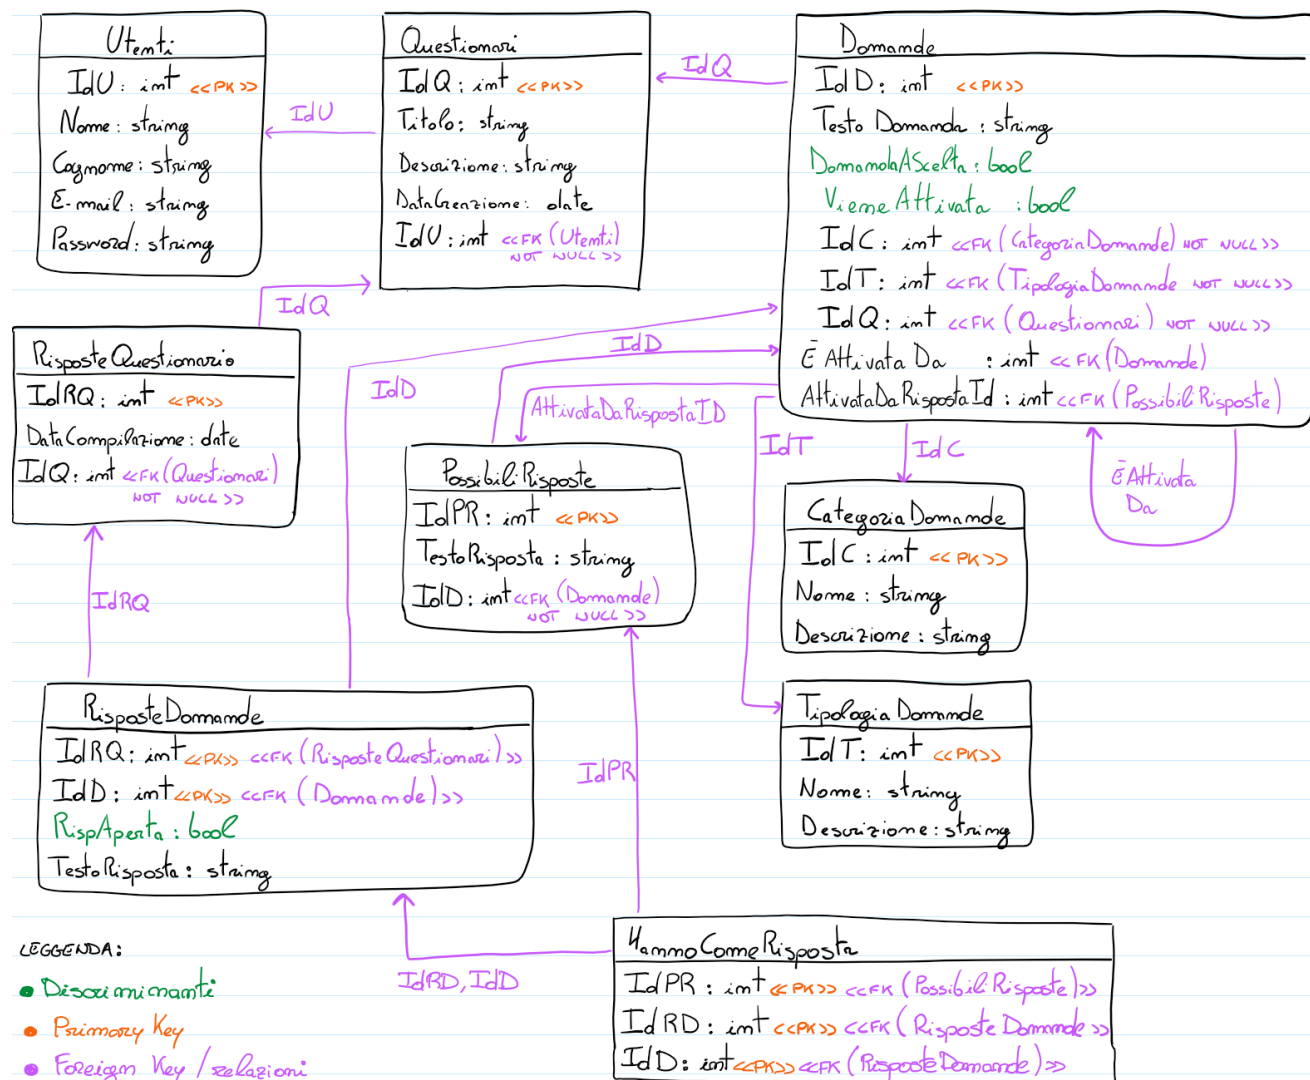 Utenti
IdU: int <<PK>>
Nome: string
Cognome: string
E-mail: string
Password: string
IdU
Questionari
IdQ: int <<PK>>
Titolo: string
Descrizione: string
DataCreazione: date
IdU: int <<FK (Utenti)
NOT NULL>>
IdQ
Domande
IdD: int <<PK>>
Testo Domanda: string
DomandaAScelta: bool
VieneAttivata: bool
IdC: int <<FK (CategoriaDomande) NOT NULL>>
IdT: int <<FK (TipologiaDomande NOT NULL>>
IdQ: int <<FK (Questionari) NOT NULL>>
È Attivata Da : int <<FK (Domande)
AttivataDaRispostaId: int <<FK (PossibiliRisposte)
IdQ
RisposteQuestionario
IdRQ: int <<PK>>
DataCompilazione: date
IdQ: int <<FK (Questionari)
NOT NULL>>
IdD
IdD
AttivataDaRispostaID
IdT
IdC
È Attivata
Da
PossibiliRisposte
IdPR: int <<PK>>
TestoRisposta: string
IdD: int <<FK (Domande)
NOT NULL>>
CategoriaDomande
IdC: int <<PK>>
Nome: string
Descrizione: string
IdRQ
RisposteDomande
IdRQ: int <<PK>> <<FK (RisposteQuestionari)>>
IdD: int <<PK>> <<FK (Domande)>>
RispAperta: bool
TestoRisposta: string
IdPR
TipologiaDomande
IdT: int <<PK>>
Nome: string
Descrizione: string
IdRD, IdD
HannoComeRisposta
IdPR: int <<PK>> <<FK (PossibiliRisposte)>>
IdRD: int <<PK>> <<FK (RisposteDomande>>
IdD: int <<PK>> <<FK (RisposteDomande)>>
LEGGENDA:
• Discriminanti
• Primary Key
• Foreign Key / relazioni